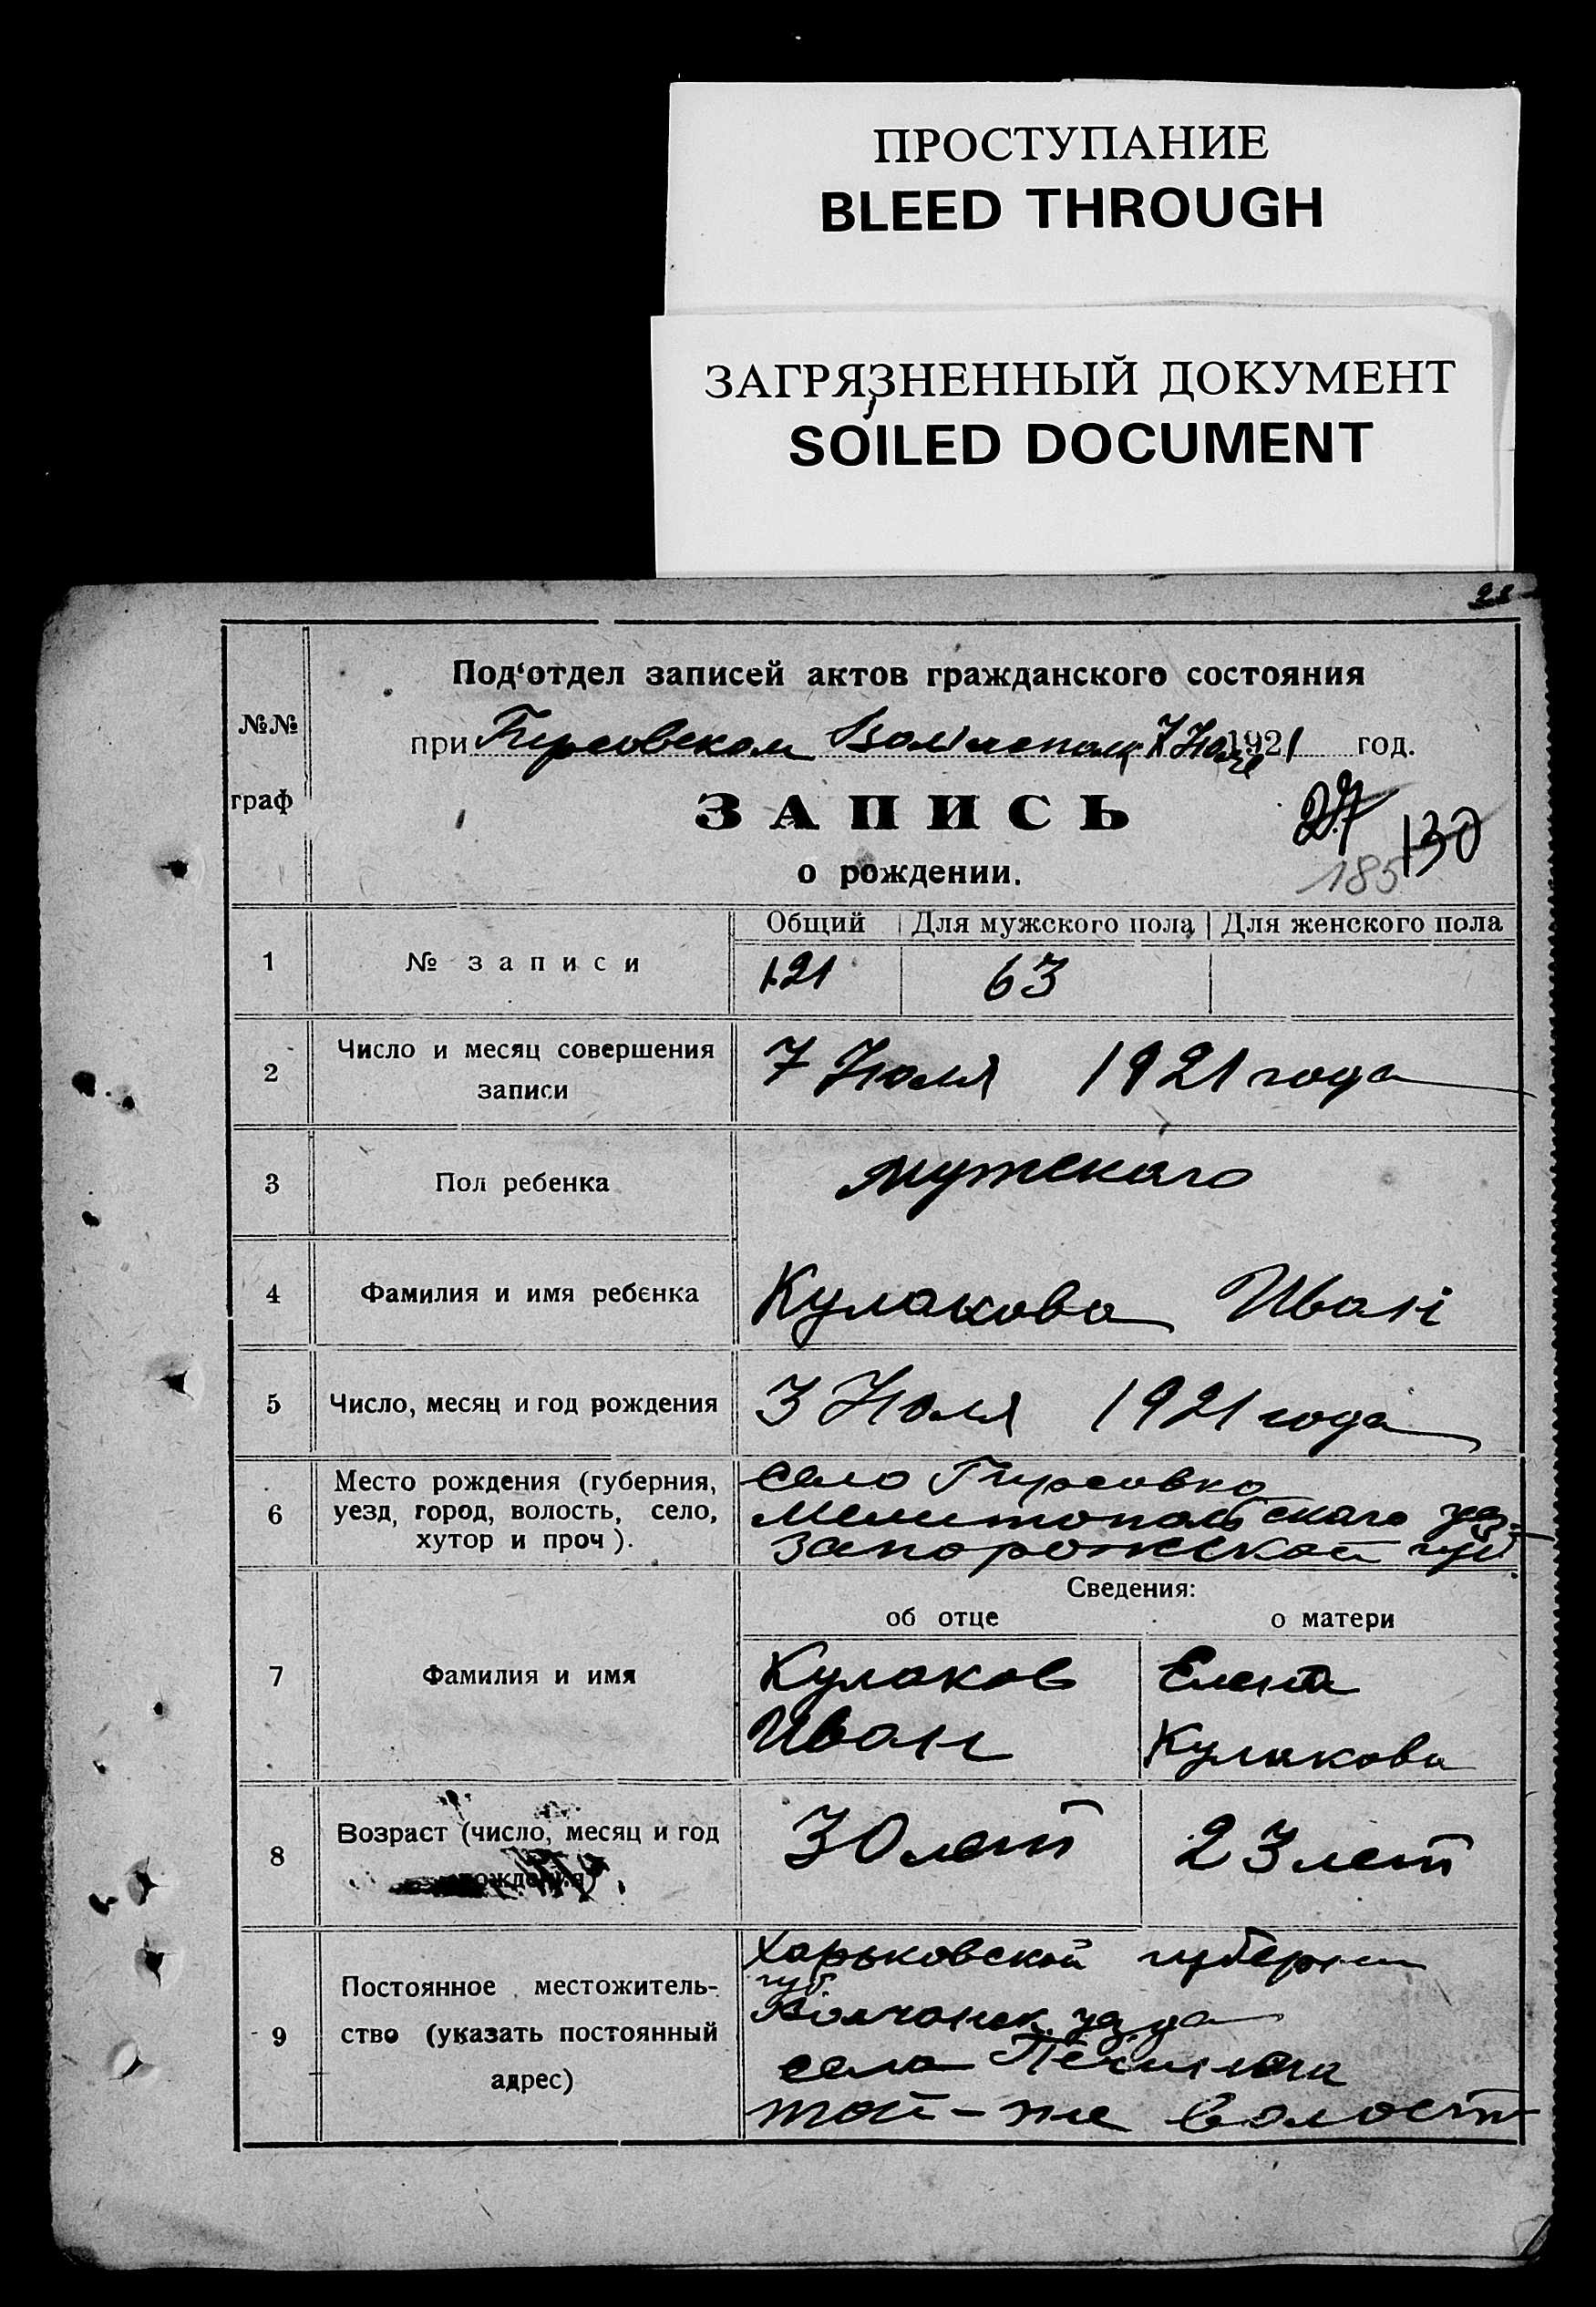 ПРОСТУПАНИЕ
BLEED THROUGH
ЗАГРЯЗНЕННЫЙ ДОКУМЕНТ
SOILED DOCUMENT
Под‘отдел записей актов гражданского состояния
№№
при Гирсовском 7 Июля 1921 год.
граф
ЗАПИСЬ
27
130
о рождении.
185
Общий Для мужского пола Для женского пола
1 № записи 121 63
2 Число и месяц совершения записи 7 Июля 1921 года
3 Пол ребенка мужскаго
4 Фамилия и имя ребенка Кулакова Иван
5 Число, месяц и год рождения 3 Июля 1921 года
6 Место рождения (губерния, село Гирсовка
уезд, город, волость, село, Мелитопольскаго уез.
хутор и проч). Запорожской губ.
Сведения:
об отце о матери
7 Фамилия и имя Кулаков Елена
Иван Кулакова
8 Возраст (число, месяц и год 30 лет 23 лет
рождения)
Харьковской губернии
губ
9 Постоянное местожитель- Волчанск. уезда
ство (указать постоянный села
адрес) той-же волости